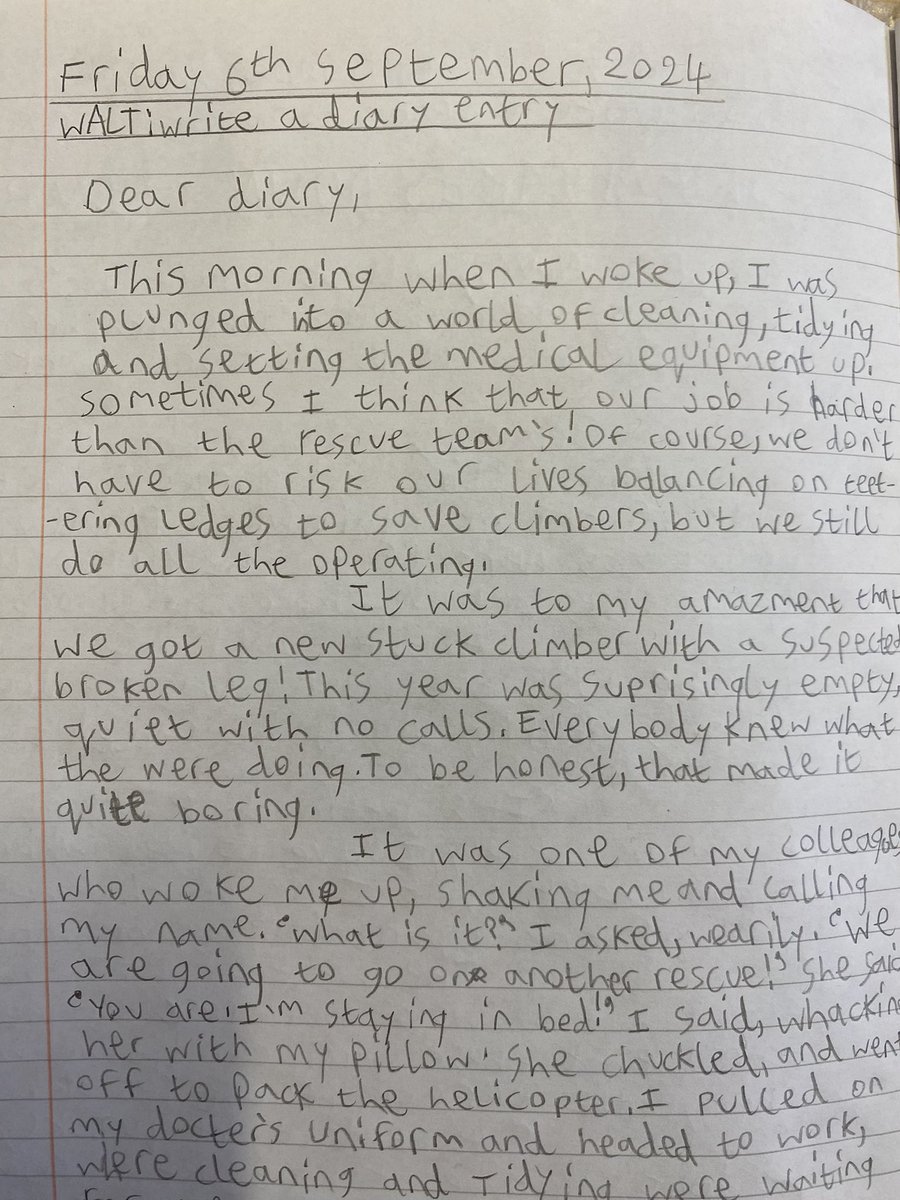 Friday 6th september, 2024
WALT: write a diary entry
Dear diary,
This morning when I woke up, I was
plunged into a world of cleaning, tidying
and setting the medical equipment up.
sometimes I think that our job is harder
than the rescue team's! Of course, we don't
have to risk our lives balancing on teet-
-ering ledges to save climbers, but we still
do all the operating.
It was to my amazment that
we got a new stuck climber with a suspected
broken leg! This year was suprisingly empty,
quiet with no calls. Everybody knew what
the were doing. To be honest, that made it
quite boring.
It was one of my colleages
who woke me up, shaking me and calling
my name. "What is it?" I asked, wearily. "We
are going to go on another rescue!" she said
"You are. I'm staying in bed!" I said, whackin
her with my pillow. She chuckled, and went
off to pack the helicopter. I pulled on
my docter's uniform and headed to work,
were cleaning and Tidying were waiting